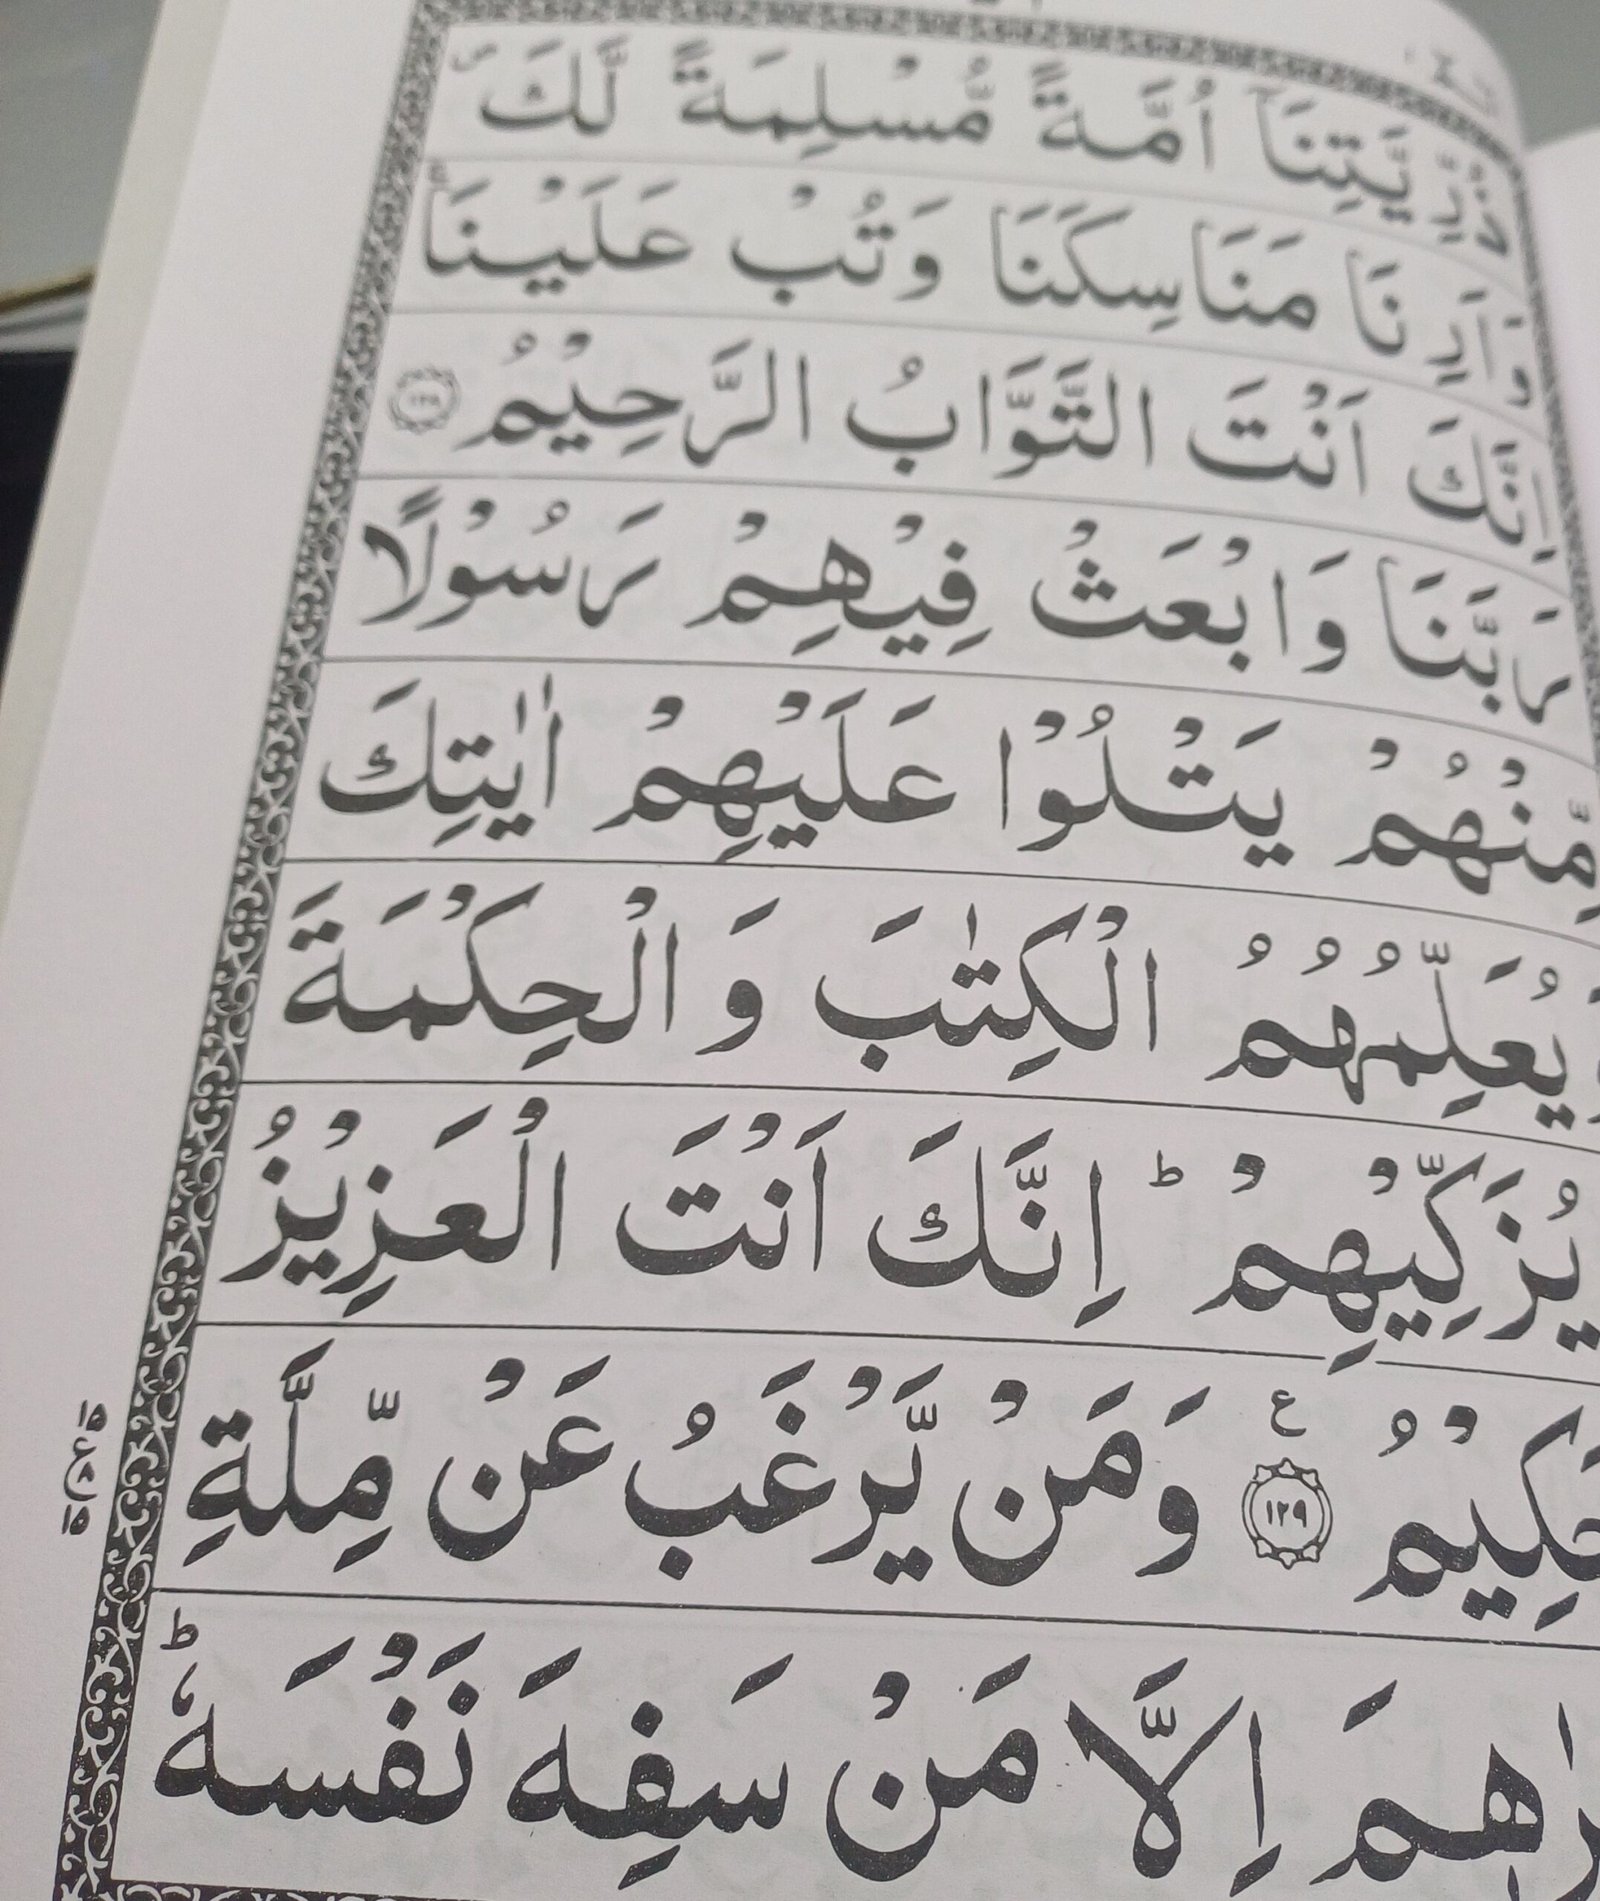 ذُرِّيَّتِنَاۤ اُمَّةً مُّسْلِمَةً لَّكَ۪
وَاَرِنَا مَنَاسِكَنَا وَتُبْ عَلَيْنَاۚ
اِنَّكَ اَنْتَ التَّوَّابُ الرَّحِيْمُ ۝١٢٨
رَبَّنَا وَابْعَثْ فِيْهِمْ رَسُوْلًا
مِّنْهُمْ يَتْلُوْا عَلَيْهِمْ اٰيٰتِكَ
وَيُعَلِّمُهُمُ الْكِتٰبَ وَالْحِكْمَةَ
يُزَكِّيْهِمْ ؕ اِنَّكَ اَنْتَ الْعَزِيْزُ
حَكِيْمُ ۝١٢٩ ع وَمَنْ يَّرْغَبُ عَنْ مِّلَّةِ
رٰهٖمَ اِلَّا مَنْ سَفِهَ نَفْسَهٗ ؕ